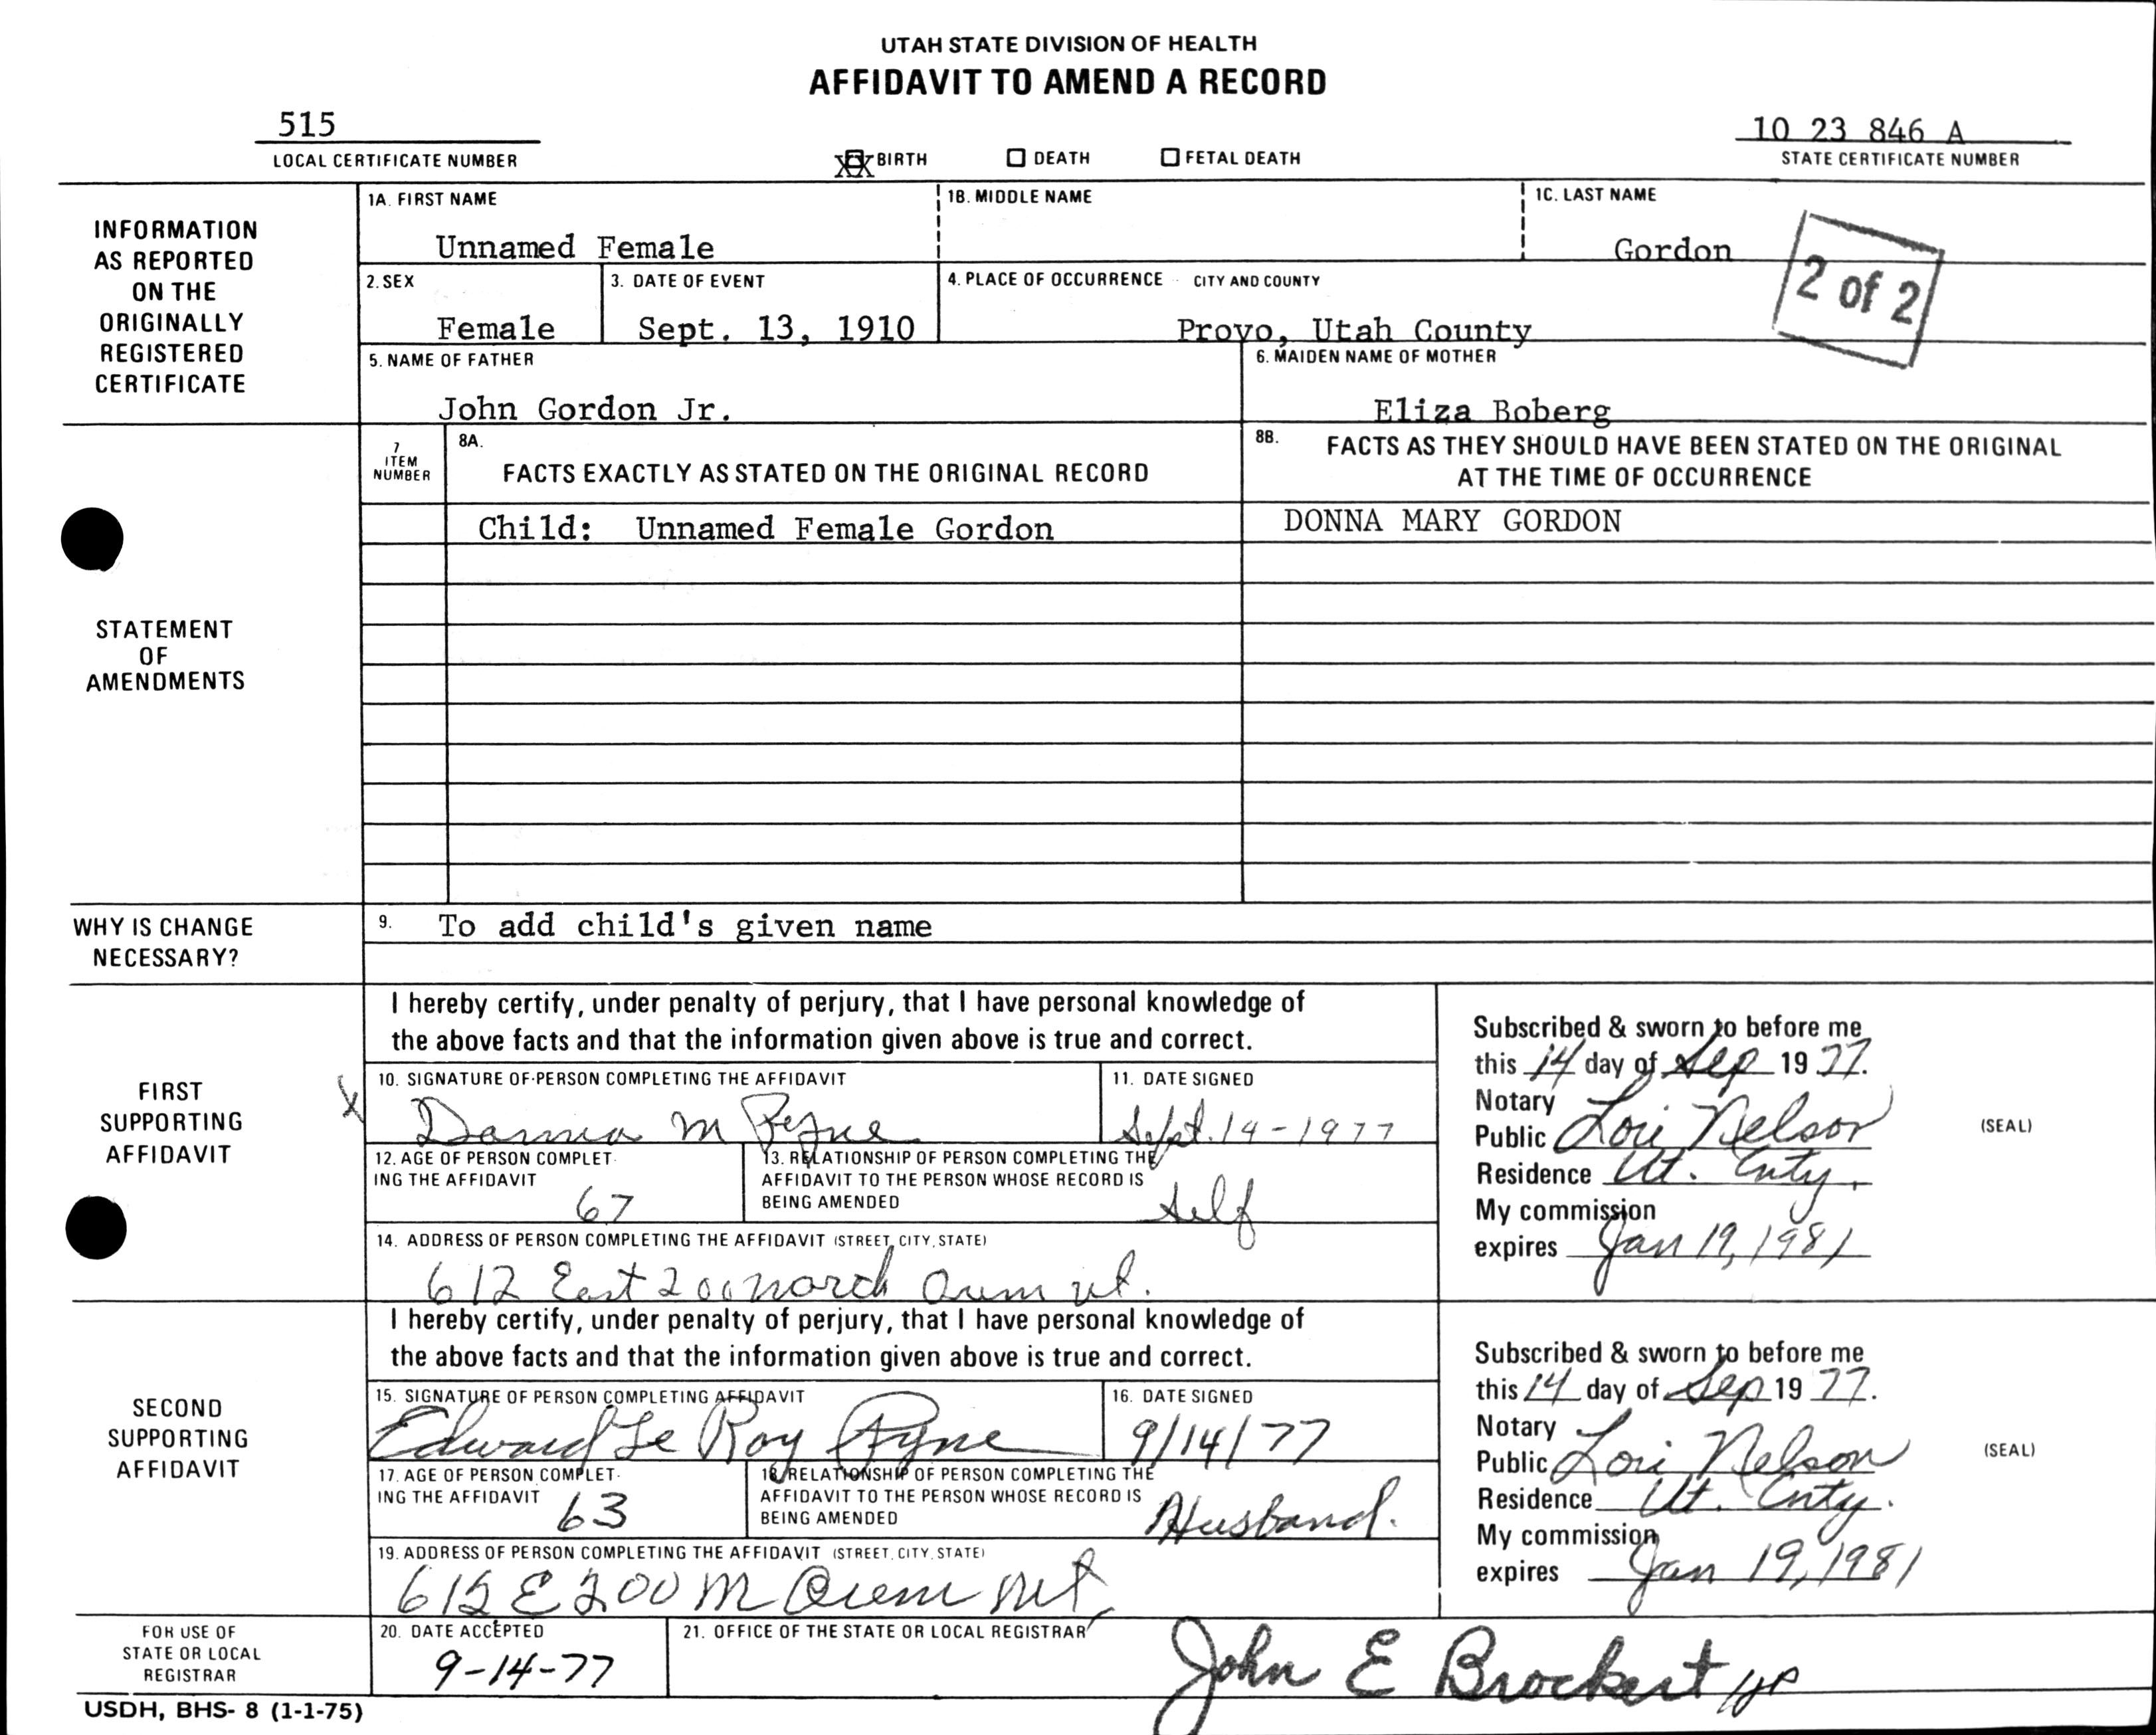 UTAH STATE DIVISION OF HEALTH
AFFIDAVIT TO AMEND A RECORD
515
LOCAL CERTIFICATE NUMBER
XX BIRTH DEATH FETAL DEATH
10 23 846 A
STATE CERTIFICATE NUMBER
INFORMATION
AS REPORTED
ON THE
ORIGINALLY
REGISTERED
CERTIFICATE
1A. FIRST NAME
Unnamed Female
1B. MIDDLE NAME
1C. LAST NAME
Gordon
2 of 2
2. SEX
Female
3. DATE OF EVENT
Sept. 13, 1910
4. PLACE OF OCCURRENCE CITY AND COUNTY
Provo, Utah County
5. NAME OF FATHER
John Gordon Jr.
6. MAIDEN NAME OF MOTHER
Eliza Boberg
STATEMENT
OF
AMENDMENTS
7
ITEM
NUMBER
8A.
FACTS EXACTLY AS STATED ON THE ORIGINAL RECORD
8B. FACTS AS THEY SHOULD HAVE BEEN STATED ON THE ORIGINAL
AT THE TIME OF OCCURRENCE
Child: Unnamed Female Gordon
DONNA MARY GORDON
WHY IS CHANGE
NECESSARY?
9. To add child's given name
FIRST
SUPPORTING
AFFIDAVIT
I hereby certify, under penalty of perjury, that I have personal knowledge of
the above facts and that the information given above is true and correct.
X
10. SIGNATURE OF PERSON COMPLETING THE AFFIDAVIT
Donna M Pyne
11. DATE SIGNED
Sept. 14-1977
12. AGE OF PERSON COMPLET-
ING THE AFFIDAVIT
67
13. RELATIONSHIP OF PERSON COMPLETING THE
AFFIDAVIT TO THE PERSON WHOSE RECORD IS
BEING AMENDED
Self
14. ADDRESS OF PERSON COMPLETING THE AFFIDAVIT (STREET, CITY, STATE)
612 East 200 north Orem ut.
Subscribed & sworn to before me
this 14 day of Sep 19 77.
Notary
Public Lori Nelson
(SEAL)
Residence Ut. Cnty.
My commission
expires Jan 19, 1981
SECOND
SUPPORTING
AFFIDAVIT
I hereby certify, under penalty of perjury, that I have personal knowledge of
the above facts and that the information given above is true and correct.
15. SIGNATURE OF PERSON COMPLETING AFFIDAVIT
Edward Le Roy Pyne
16. DATE SIGNED
9/14/77
17. AGE OF PERSON COMPLET-
ING THE AFFIDAVIT
63
18. RELATIONSHIP OF PERSON COMPLETING THE
AFFIDAVIT TO THE PERSON WHOSE RECORD IS
BEING AMENDED
Husband.
19. ADDRESS OF PERSON COMPLETING THE AFFIDAVIT (STREET, CITY, STATE)
612 E 200 N Orem Ut,
Subscribed & sworn to before me
this 14 day of Sep 19 77.
Notary
Public Lori Nelson
(SEAL)
Residence Ut. Cnty.
My commission
expires Jan 19, 1981
FOR USE OF
STATE OR LOCAL
REGISTRAR
20. DATE ACCEPTED
9-14-77
21. OFFICE OF THE STATE OR LOCAL REGISTRAR
John E Brockert
USDH, BHS- 8 (1-1-75)